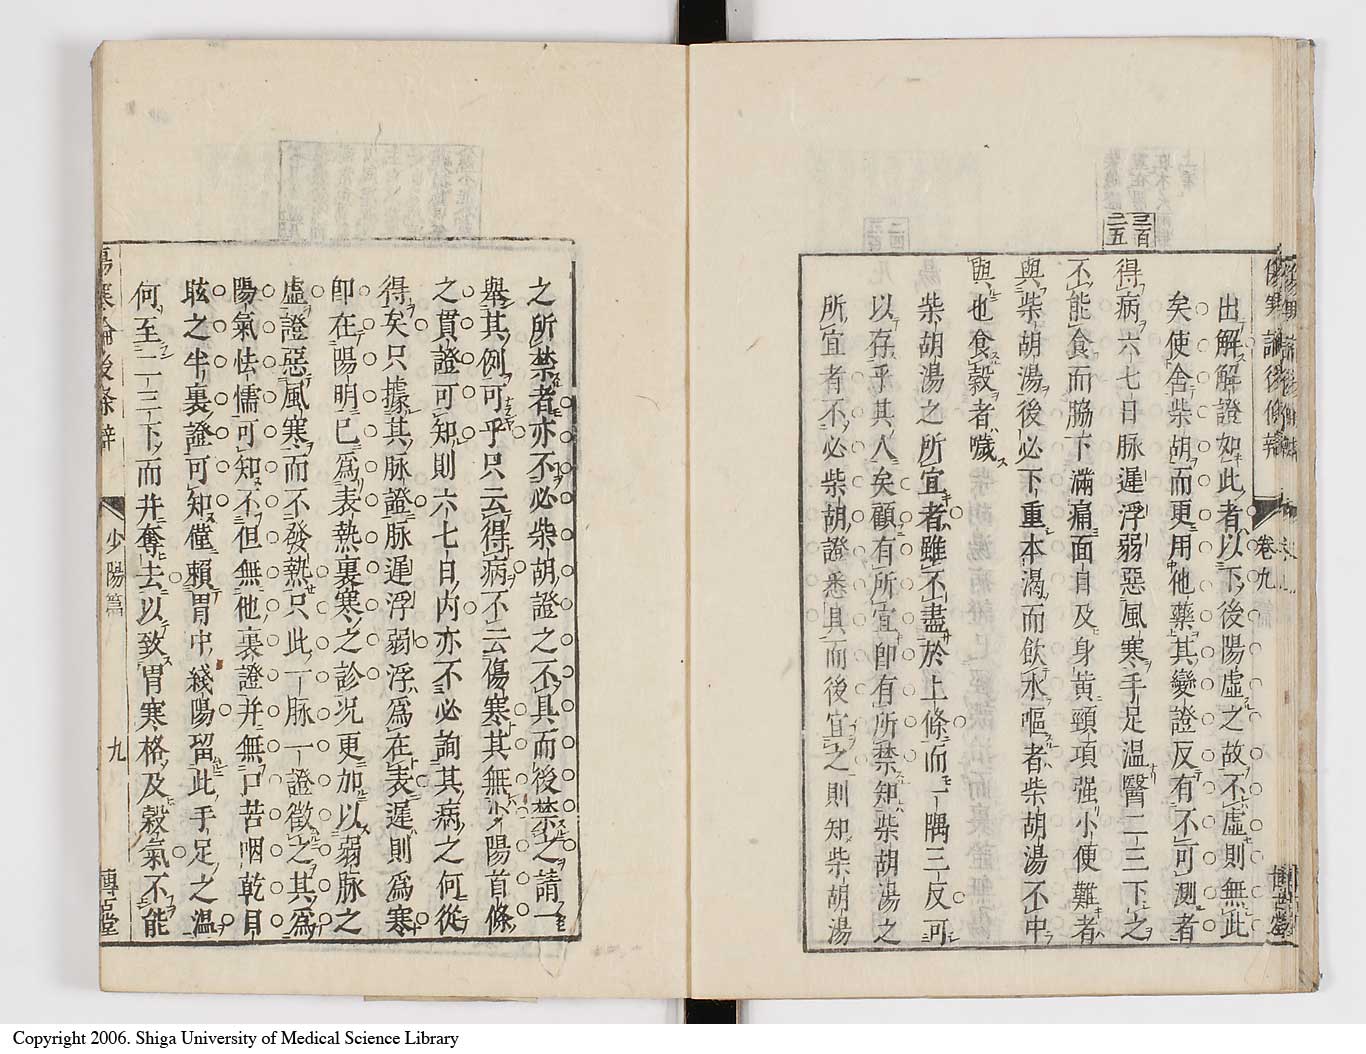 三百
二五
傷寒論後條辨
卷九
博古堂
出解解證如此者以下後陽虛之故不虛則無此
矣使舍柴胡而更用他藥其變證反有不可測者
得病六七日脉遲浮弱惡風寒手足溫醫二三下之
不能食而脇下滿痛面目及身黃頸項强小便難者
與柴胡湯後必下重本渴而飲水嘔者柴胡湯不中
與也食穀者噦
柴胡湯之所宜者雖不盡於上條而一隅三反可
以存乎其人矣顧有所宜卽有所禁知柴胡湯之
所宜者不必柴胡證悉具而後宜之則知柴胡湯
之所禁者亦不必柴胡證之不具而後禁之請一
舉其例可乎只云得病不云傷寒其無少陽首條
之貫證可知則六七日內亦不必詢其病之何從
得矣只據其脉證脉遲浮弱浮爲在表遲則爲寒
卽在陽明已爲表熱裏寒之診况更加以弱脉之
虛證惡風寒而不發熱只此一脉一證徵之其爲
陽氣怯懦可知不但無他裏證并無口苦咽乾目
眩之半裏證可知僅賴胃中綫陽留此手足之溫
何至二三下而幷奪去以致胃寒格及穀氣不能
傷寒論後條辨
少陽篇
九
博古堂
Copyright 2006. Shiga University of Medical Science Library